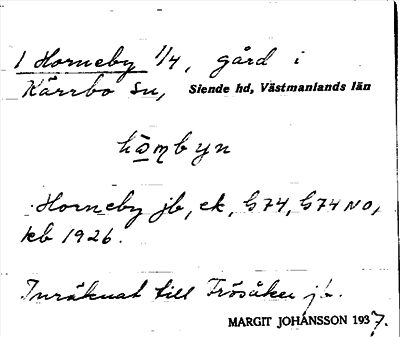 1 Horneby 1/4, gård i
Kärrbo sn, Siende hd, Västmanlands län
hå̱m̱byn
Horneby jb, ek, G74, G74 NO,
kb 1926.
Inräknat till Frösåker jb.
MARGIT JOHANSSON 1937.